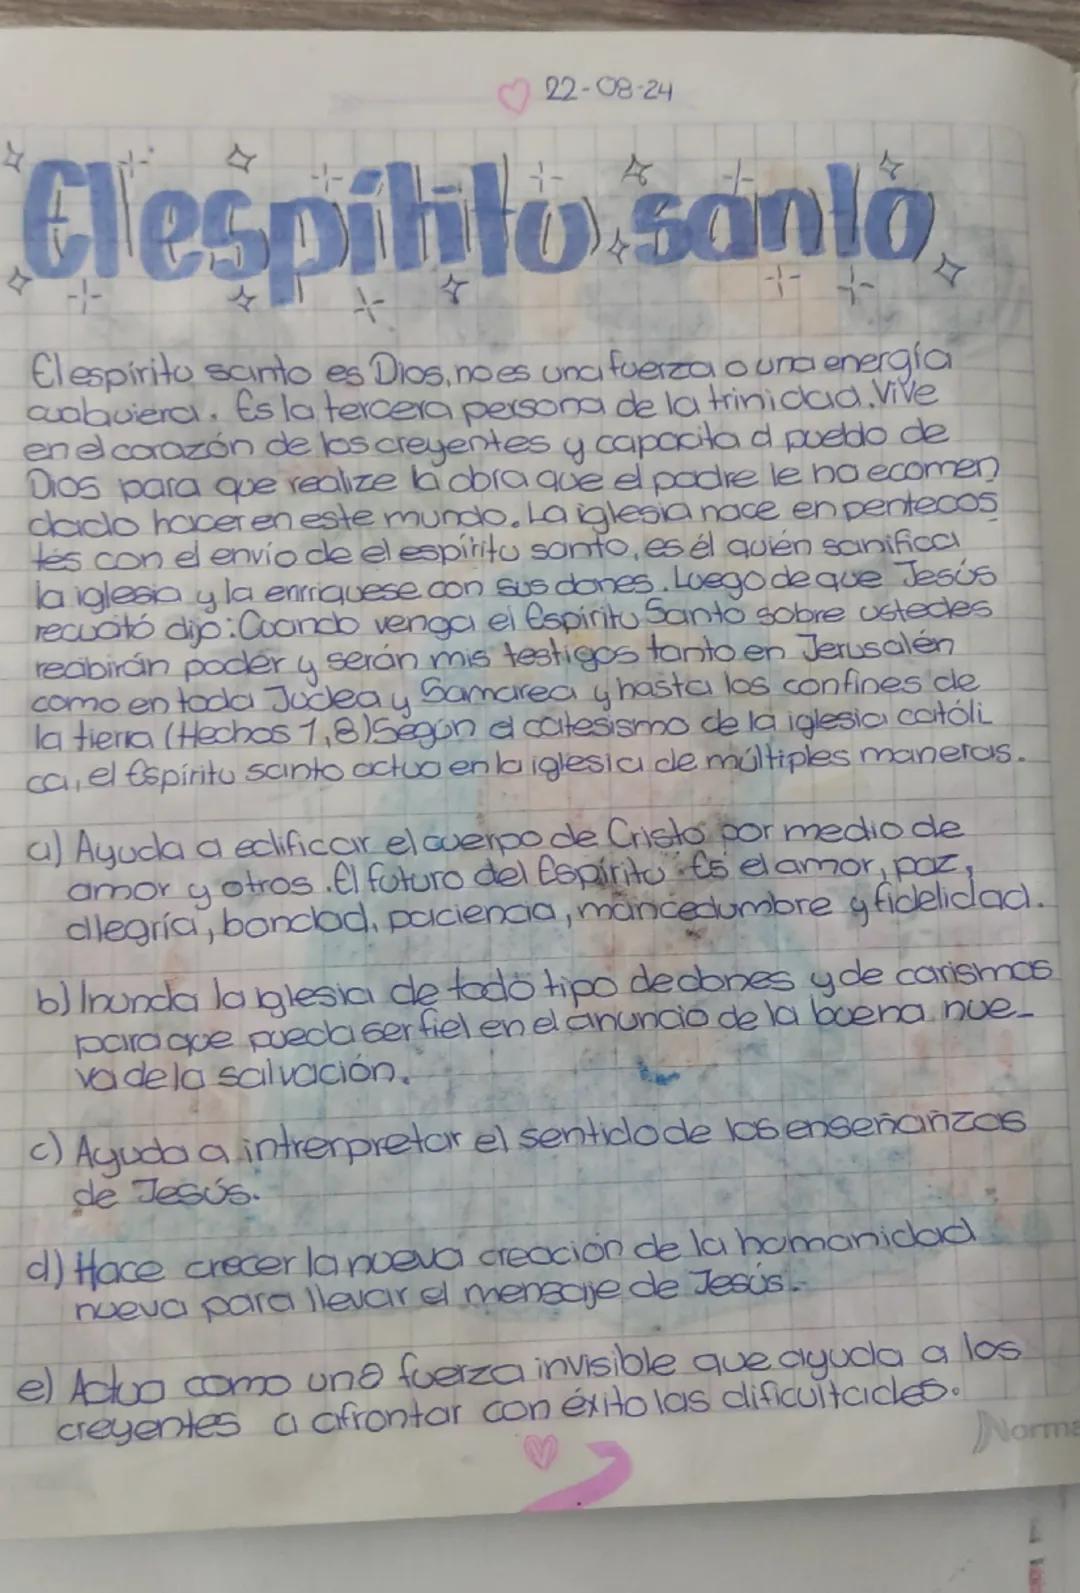 22-08-24
El espíritu santo
El espíritu santo es Dios, no es una fuerza o una energía
cualquiera. Es la tercera persona de la trinidad. Vive
en el corazón de los creyentes y capacita al pueblo de
Dios para que realize la obra que el padre le ha ecomen
dado hacer en este mundo. La iglesia nace en pentecos
tés con el envío de el espíritu santo, es él quién sanifica
la iglesia y la enrriquese con sus dones. Luego de que Jesús
recucitó dijo: Cuando venga el Espiritu Santo sobre ustedes
recibirán poder y serán mis testigos tanto en Jerusalén
como en toda Judea y Samarea y hasta los confines de
la tierra (Hechos 1,8) Según el catesismo de la iglesia católi
ca, el Espíritu santo actua en la iglesia de múltiples maneras.
a) Ayuda a edificar el cuerpo de Cristo por medio de
amor y otros. El futuro del Espíritu Es el amor, paz,
alegría, bondad, paciencia, mancedumbre y fidelidad.
b) Inunda la iglesia de todo tipo de dones y de carismas
para que pueda ser fiel en el anuncio de la buena nue-
va de la salvación.
c) Ayuda a intrenpretar el sentido de las enseñanzas
de Jesús.
d) Hace crecer la nueva creación de la humanidad
nueva para llevar el mensaje de Jesús.
e) Actua como una fuerza invisible que ayuda a los
creyentes a afrontar con éxito las dificultades.
Norma